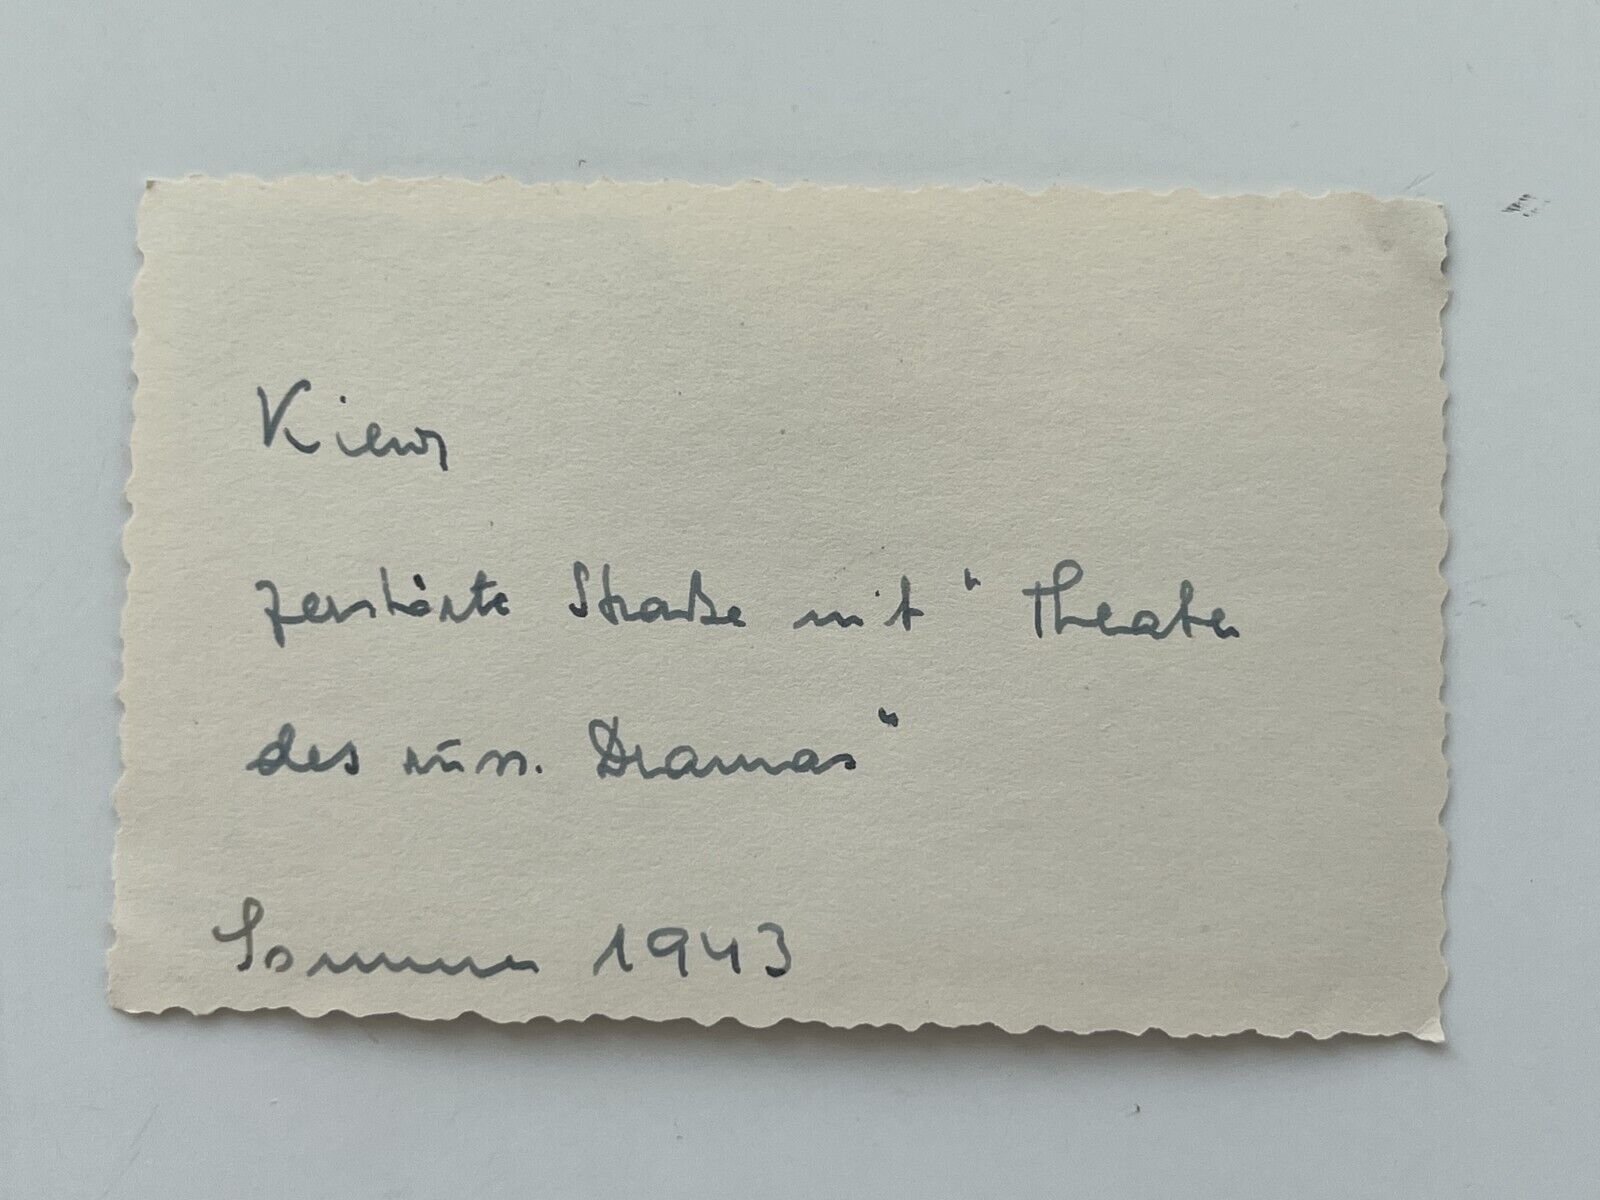 Kiew
zerstörte Straße mit "Theater
des russ. Dramas"
Sommer 1943